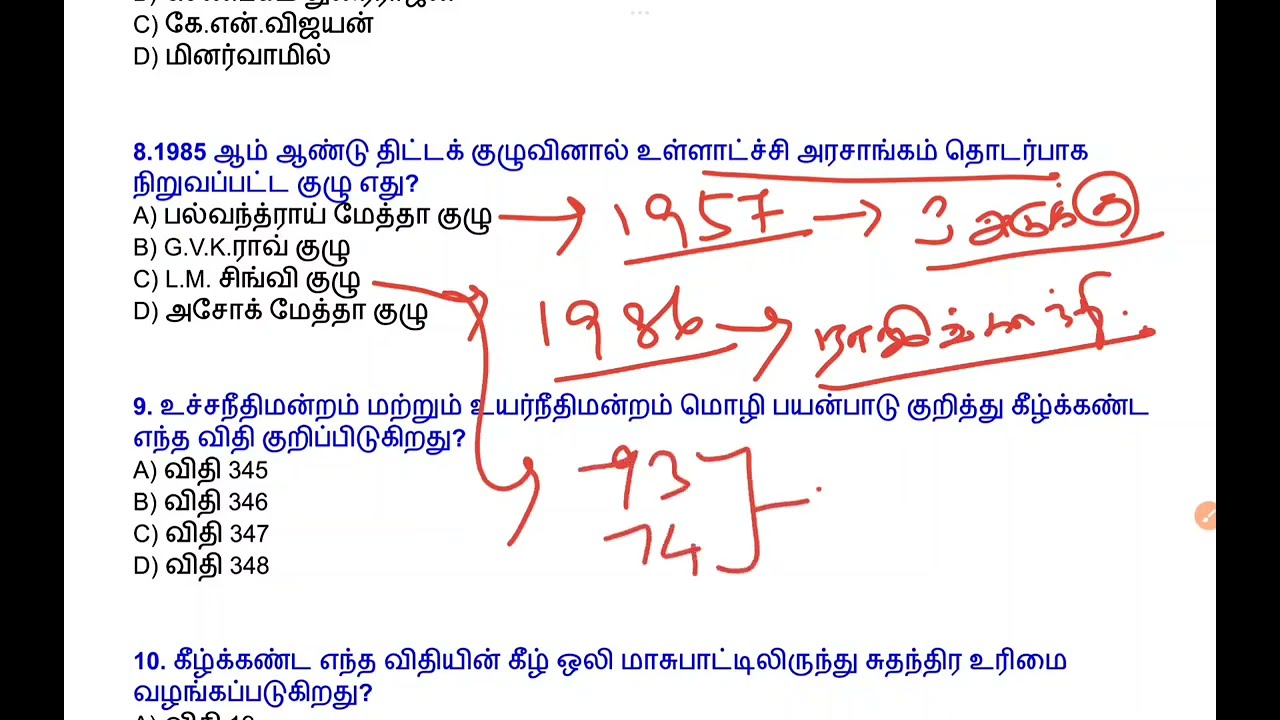 C) கே.என்.விஜயன்
D) மினர்வாமில்
8.1985 ஆம் ஆண்டு திட்டக் குழுவினால் உள்ளாட்ச்சி அரசாங்கம் தொடர்பாக
நிறுவப்பட்ட குழு எது?
A) பல்வந்த்ராய் மேத்தா குழு
1957
3 அடுக்கு
B) G.V.K.ராவ் குழு
C) L.M. சிங்வி குழு
D) அசோக் மேத்தா குழு
1986
ராஜிவ்காந்தி.
9. உச்சநீதிமன்றம் மற்றும் உயர்நீதிமன்றம் மொழி பயன்பாடு குறித்து கீழ்க்கண்ட
எந்த விதி குறிப்பிடுகிறது?
A) விதி 345
B) விதி 346
C) விதி 347
D) விதி 348
74
10. கீழ்க்கண்ட எந்த விதியின் கீழ் ஒலி மாசுபாட்டிலிருந்து சுதந்திர உரிமை
வழங்கப்படுகிறது?